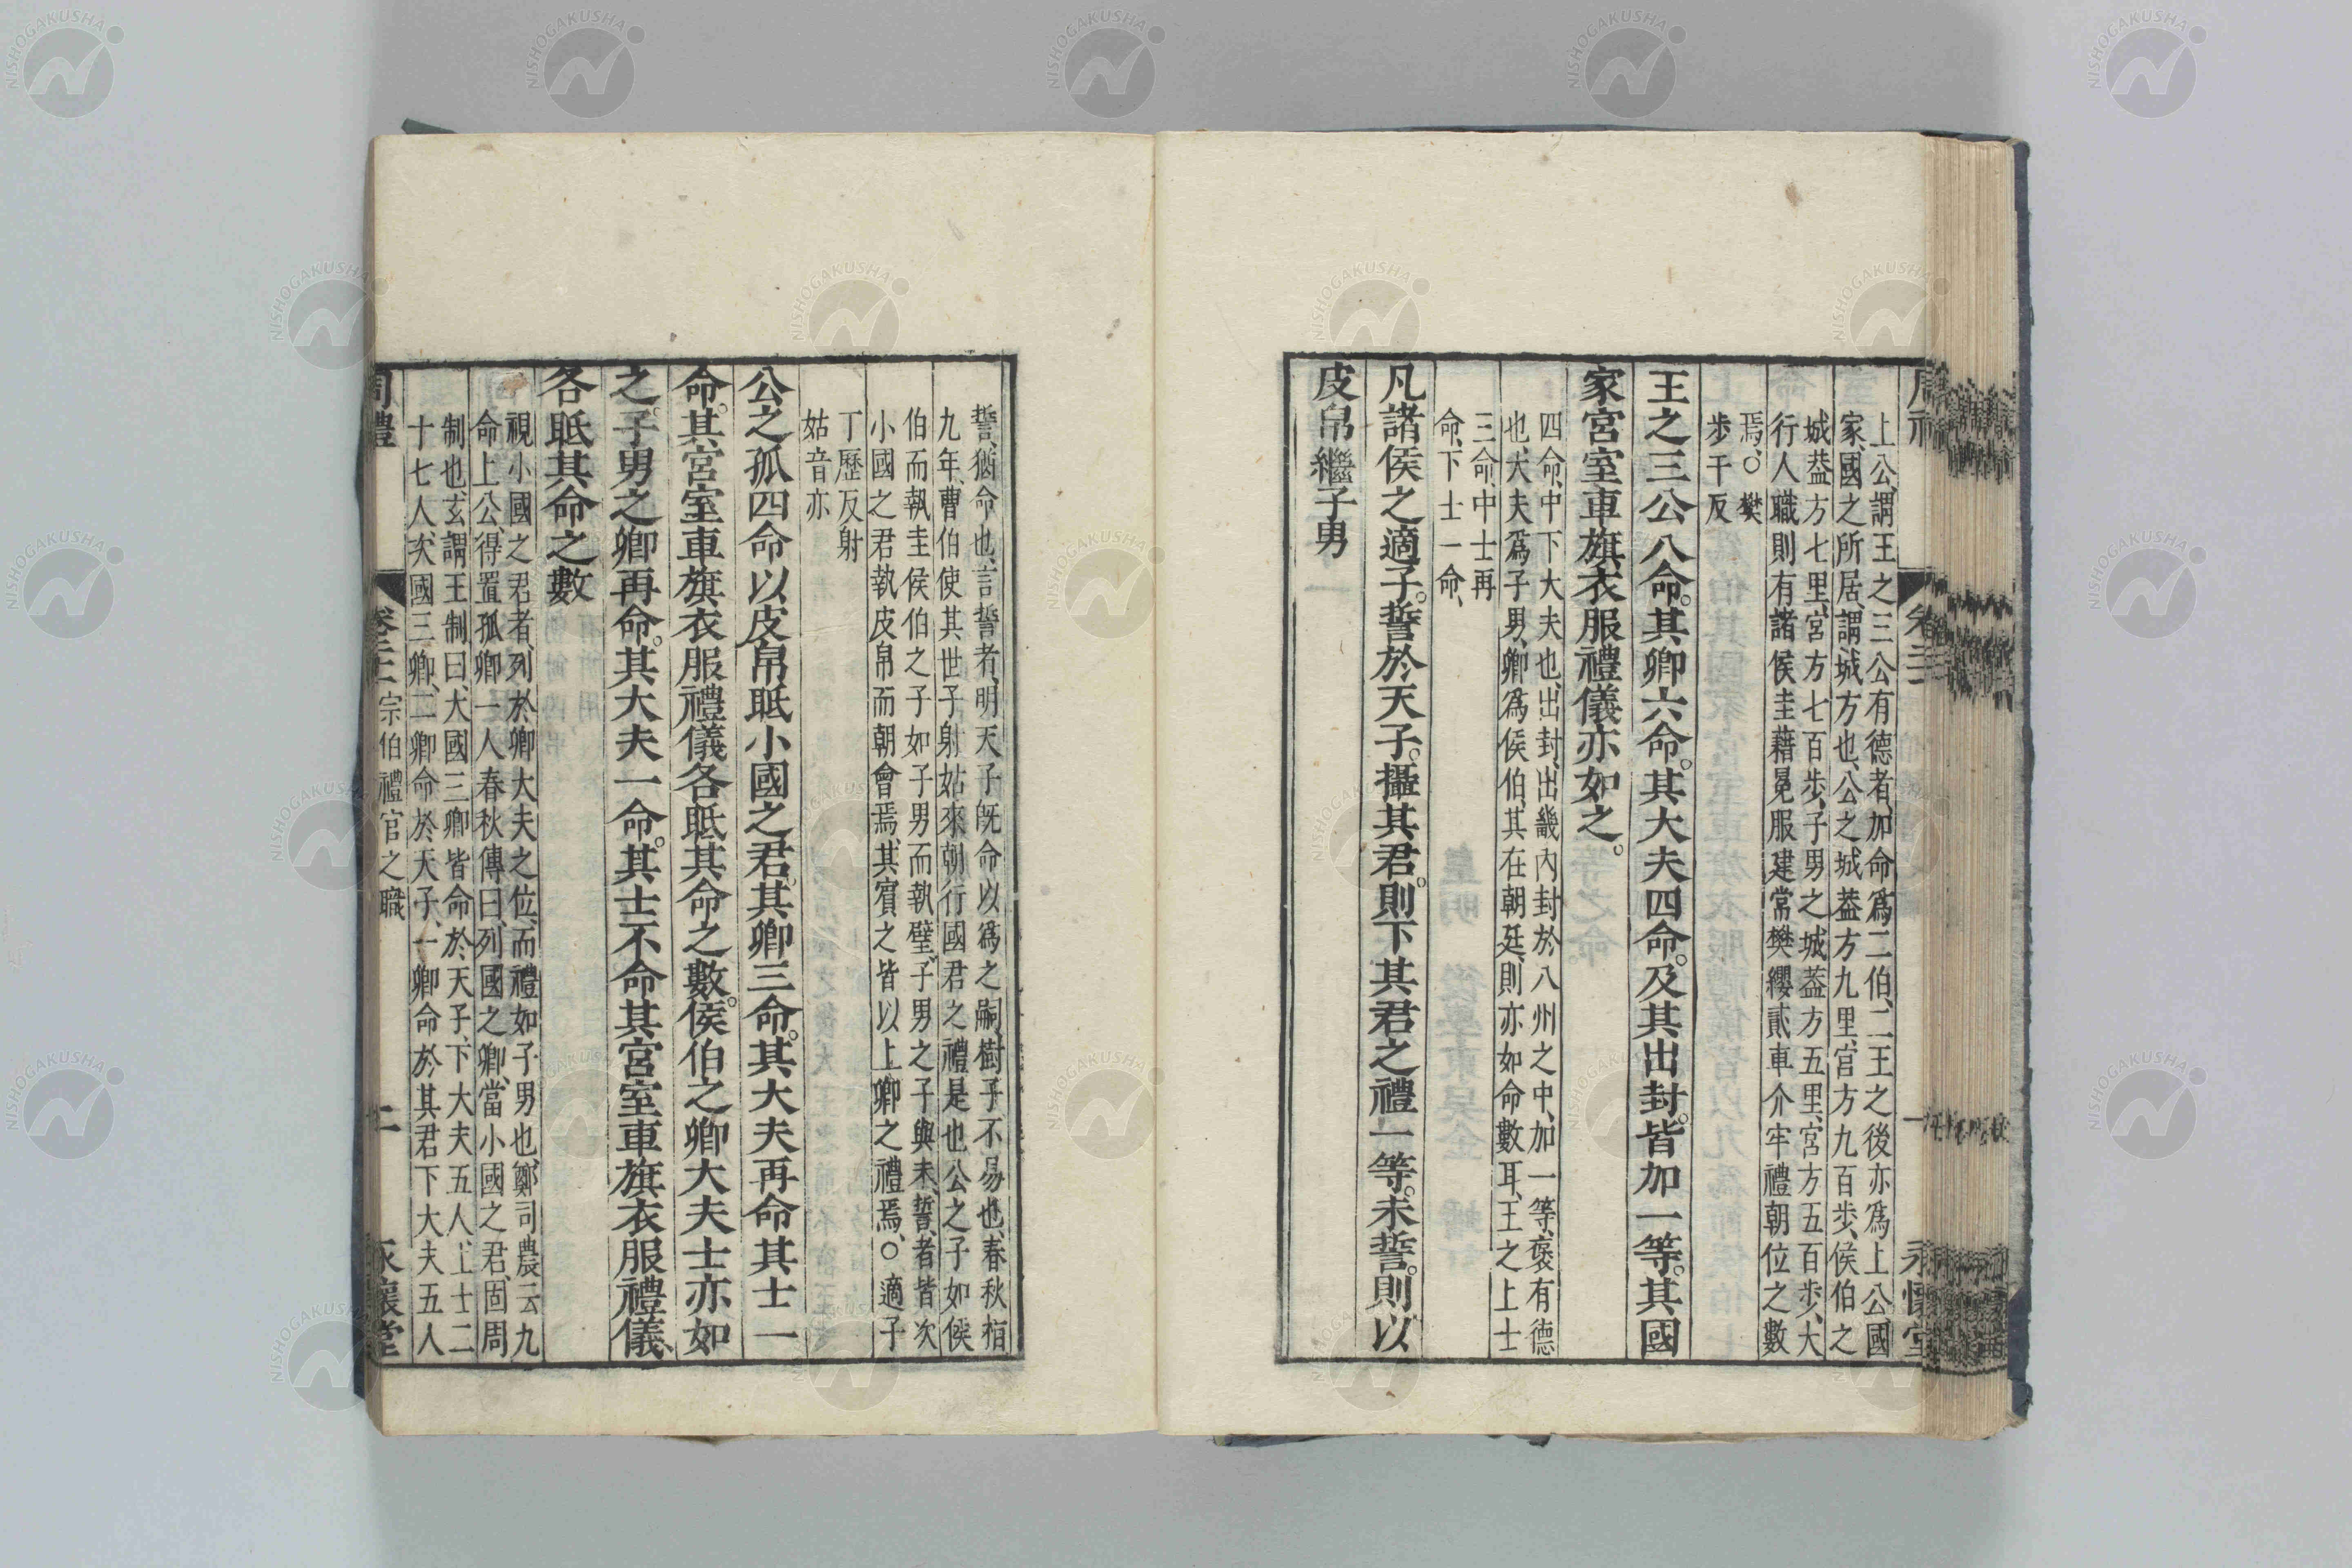 上公謂王之三公有德者、加命爲二伯、二王之後亦爲上公、國
家、國之所居、謂城方也、公之城葢方九里、宮方九百步、侯伯之
城葢方七里、宮方七百步、子男之城葢方五里、宮方五百步、大
行人職則有諸侯圭藉冕服建常樊纓貳車介牢禮朝位之數
焉、○樊
步干反
王之三公八命。其卿六命。其大夫四命。及其出封。皆加一等。其國
家宮室車旗衣服禮儀亦如之。
四命、中下大夫也、出封、出畿內封於八州之中、加一等、襃有德
也、大夫爲子男、卿爲侯伯、其在朝廷、則亦如命數耳、王之上士
三命、中士再
命、下士一命、
凡諸侯之適子。誓於天子。攝其君。則下其君之禮一等。未誓。則以
皮帛繼子男
誓、猶命也、言誓者、明天子旣命以爲之嗣、樹子不易也、春秋桓
九年、曹伯使其世子射姑來朝、行國君之禮是也、公之子如侯
伯而執圭、侯伯之子如子男而執璧、子男之子與未誓者、皆次
小國之君、執皮帛而朝會焉、其賓之皆以上卿之禮焉、○適子
丁歷反射
姑音亦
公之孤四命以皮帛眡小國之君。其卿三命。其大夫再命其士一
命。其宮室車旗衣服禮儀各眡其命之數。侯伯之卿大夫士亦如
之。子男之卿再命。其大夫一命。其士不命其宮室車旗衣服禮儀、
各眡其命之數
視小國之君者、列於卿大夫之位、而禮如子男也、鄭司農云九
命上公、得置孤卿一人、春秋傳曰、列國之卿、當小國之君、固周
制也、玄謂王制曰、大國三卿、皆命於天子、下大夫五人、上士二
十七人、次國三卿、二卿命於天子、一卿命於其君、下大夫五人
周禮 卷 宗伯禮官之職 二 永懷堂